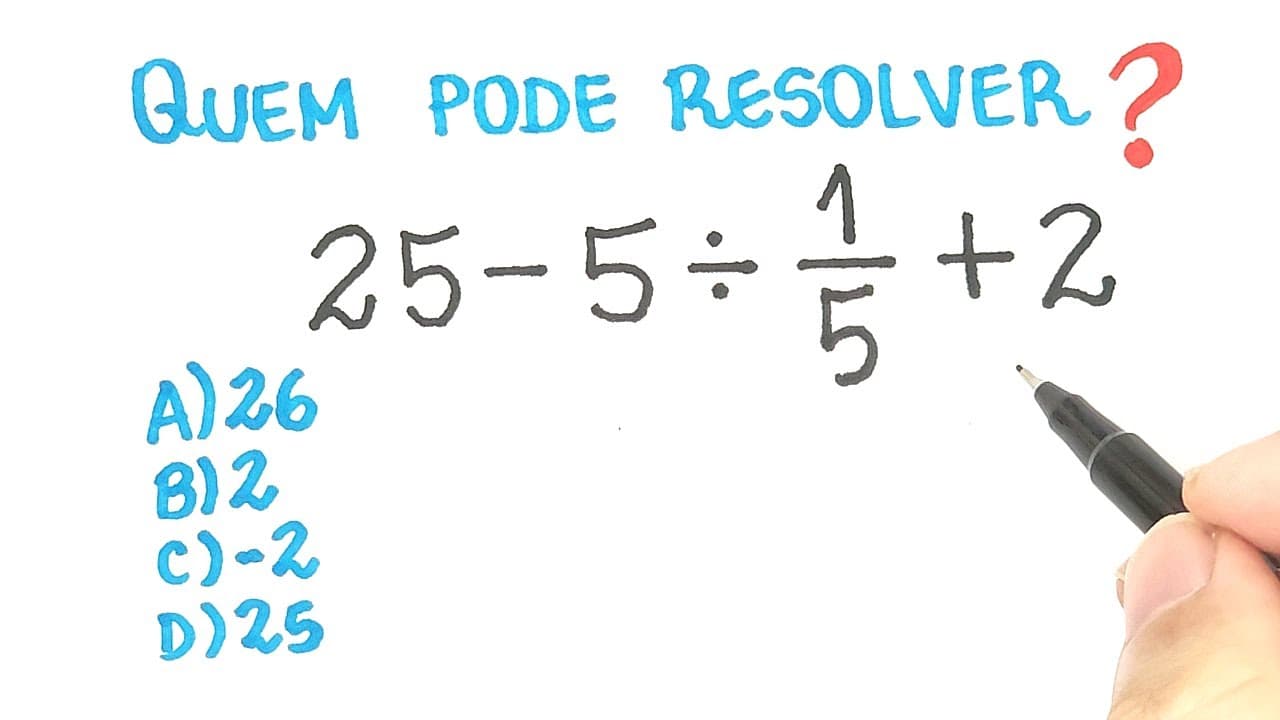 QUEM PODE RESOLVER?
25 - 5 ÷ 1/5 + 2
A) 26
B) 2
C) -2
D) 25